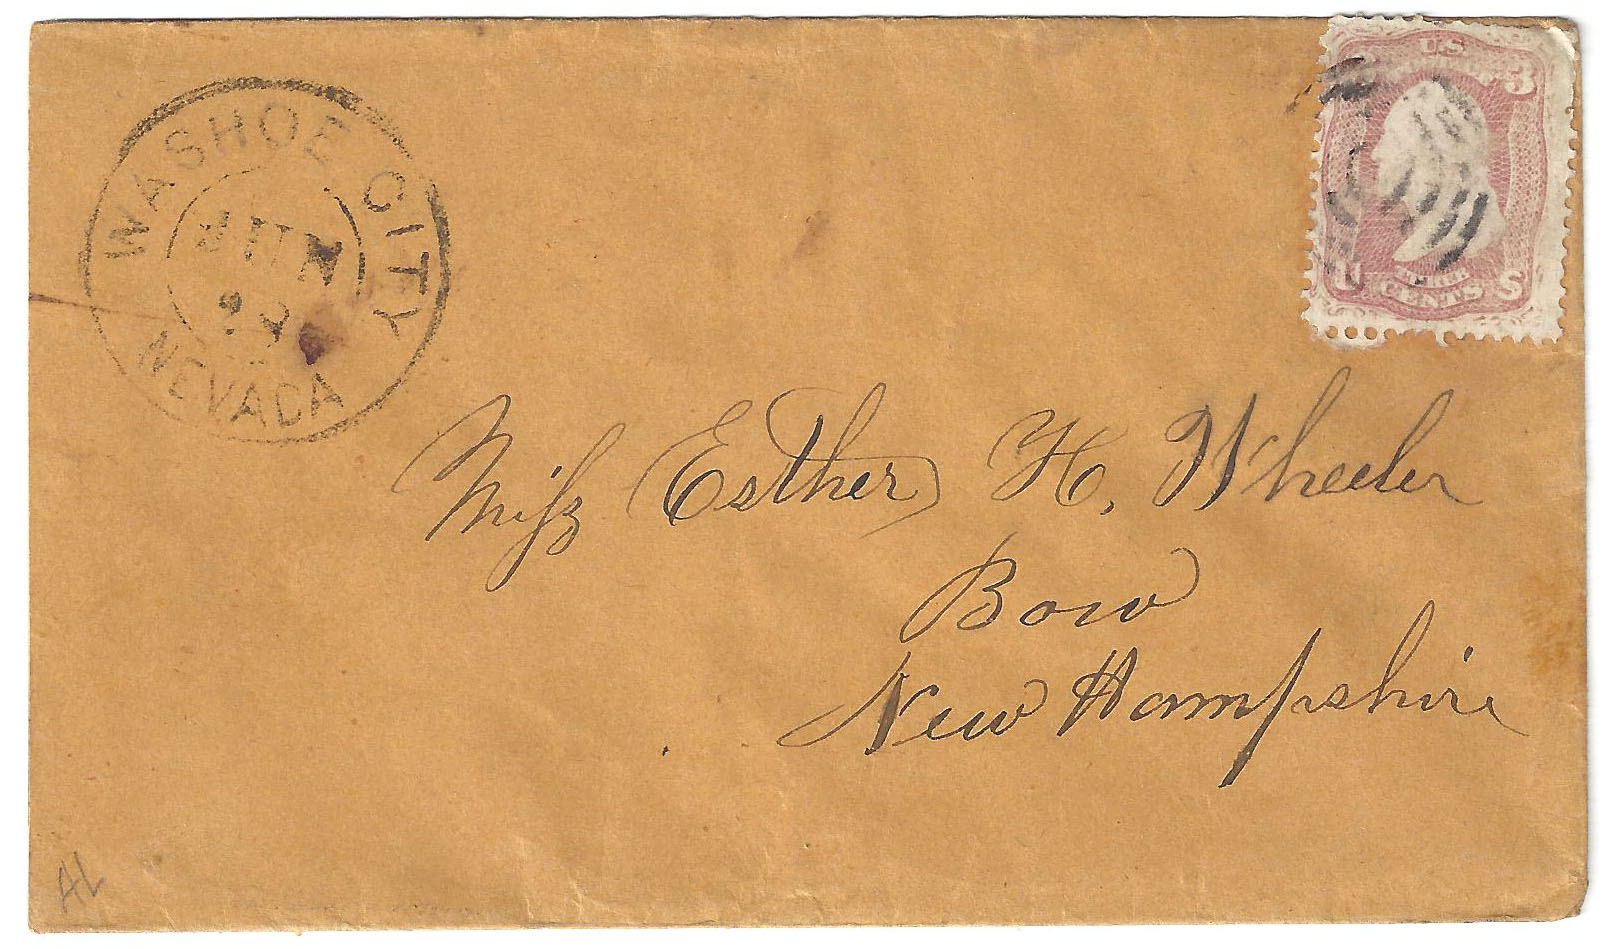 WASHOE CITY
JUN
22
NEVADA
U S
3
U S
THREE
CENTS
Miss Esther H. Wheeler
Bow
New Hampshire